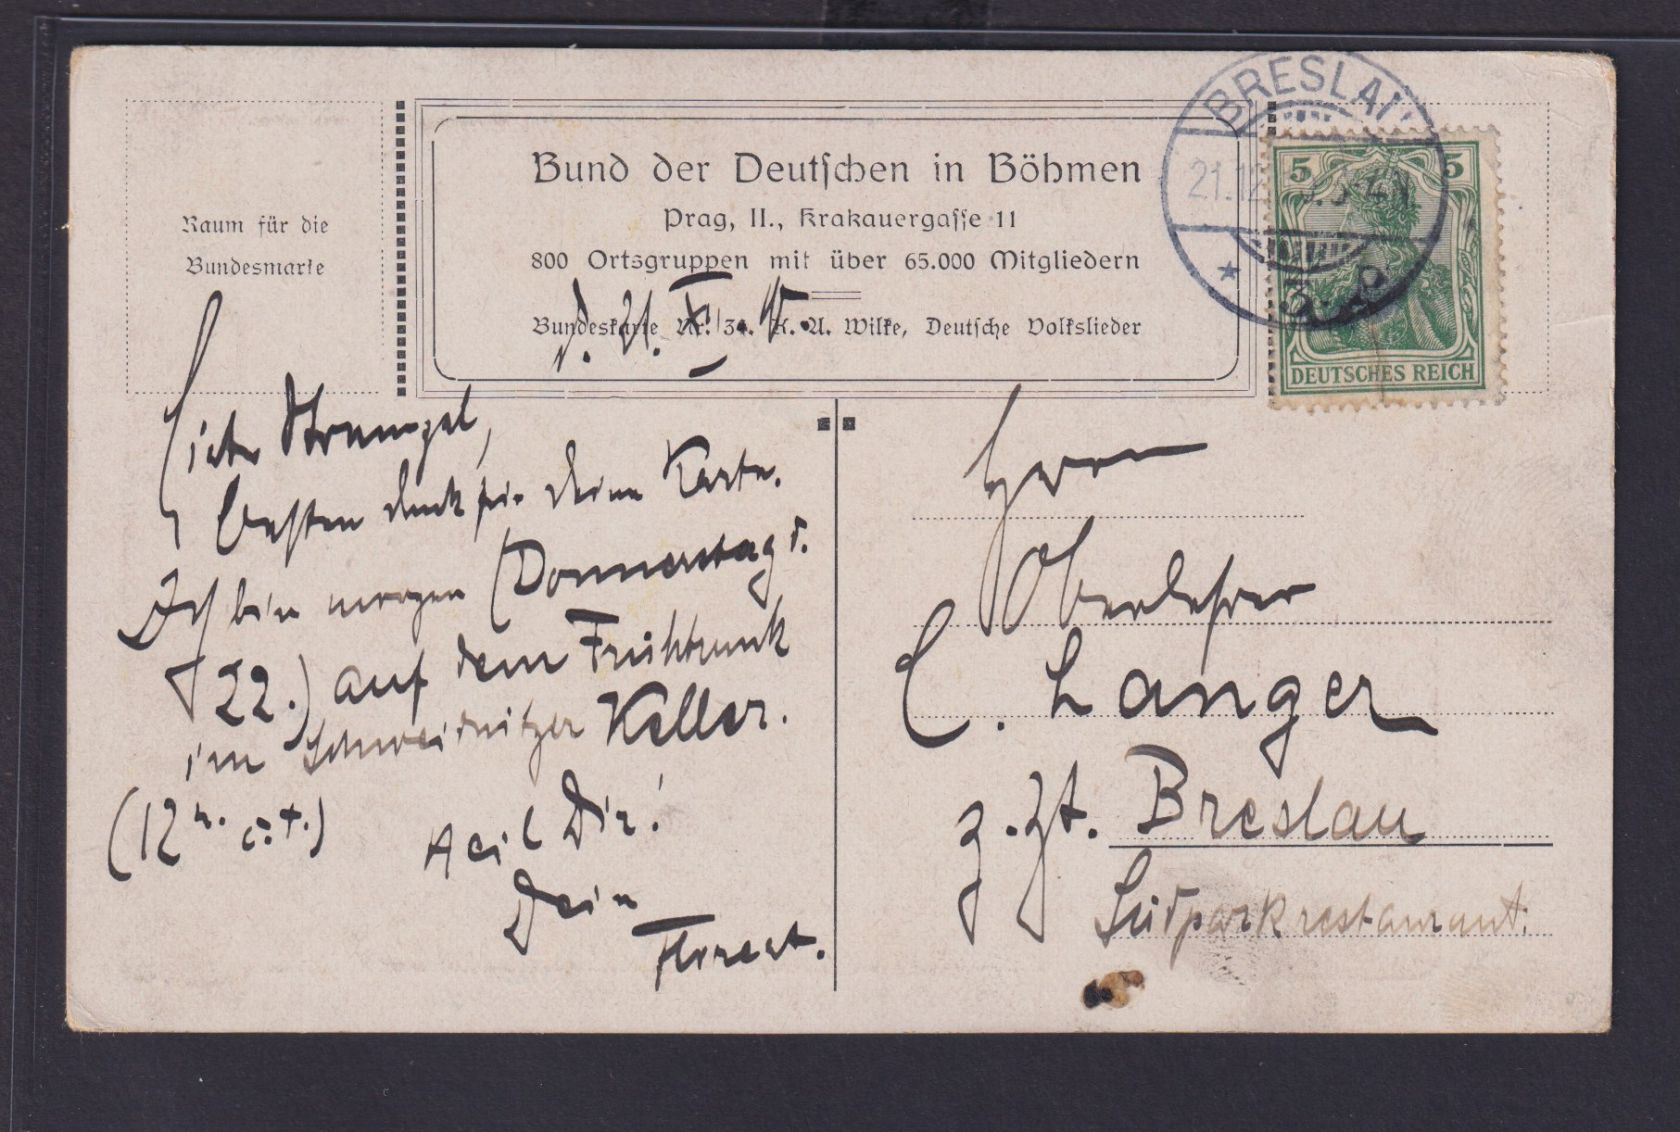 Raum für die
Bundesmarke
Bund der Deutschen in Böhmen
Prag, II., Krakauergasse 11
800 Ortsgruppen mit über 65.000 Mitgliedern
Bundeskarte Nr. 34. K. A. Wilke, Deutsche Volkslieder
BRESLAU
21.12
5 5
DEUTSCHES REICH
d. 21. XII.
besten Dank für Deine Karte.
Ich bin morgen (Donnerstag d.
22.) auf dem Frühtrunk
im Schweidnitzer Keller.
(12 h. c.t.)
Heil Dir!
Dein
Herrn
Oberlehrer
C. Langer
z. Zt. Breslau
Südparkrestaurant.